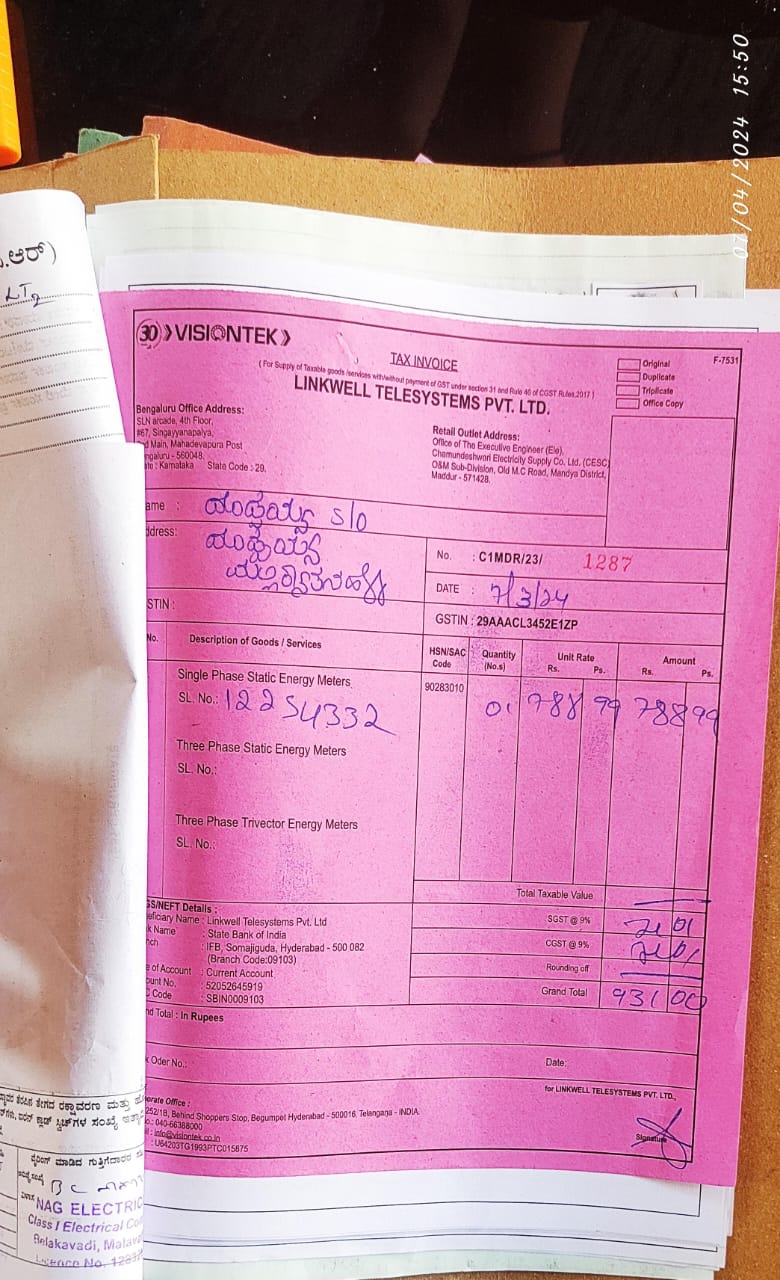 07/04/2024 15:50
.ಆರ್)
LT2
30 VISIONTEK
TAX INVOICE
( For Supply of Taxable goods /services with/without payment of GST under section 31 and Rule 46 of CGST Rules.2017 )
LINKWELL TELESYSTEMS PVT. LTD.
F-7531
Original
Duplicate
Triplicate
Office Copy
Bengaluru Office Address:
SLN arcade, 4th Floor,
#67, Singayyanapalya,
Main, Mahadevapura Post
ngaluru - 560048,
: Karnataka State Code : 29,
Retail Outlet Address:
Office of The Executive Engineer (Ele),
Chamundeshwari Electricity Supply Co. Ltd, (CESC)
O&M Sub-Division, Old M.C Road, Mandya District,
Maddur - 571428.
ame : S/o
ddress:
No. : C1MDR/23/ 1287
DATE : 7/3/24
STIN :
GSTIN : 29AAACL3452E1ZP
No. Description of Goods / Services HSN/SAC Code Quantity (No.s) Unit Rate Rs. Ps. Amount Rs. Ps.
Single Phase Static Energy Meters 90283010
SL. No.: 12254332 01 788 99 788 99
Three Phase Static Energy Meters
SL. No.:
Three Phase Trivector Energy Meters
SL. No.:
Total Taxable Value
SGST @ 9% 71 01
CGST @ 9% 71 01
Rounding off
Grand Total 931 00
GS/NEFT Details :
eficiary Name : Linkwell Telesystems Pvt. Ltd
k Name : State Bank of India
nch : IFB, Somajiguda, Hyderabad - 500 082
(Branch Code:09103)
e of Account : Current Account
ount No. : 52052645919
C Code : SBIN0009103
nd Total : In Rupees
k Oder No.: Date:
for LINKWELL TELESYSTEMS PVT. LTD.,
orate Office :
252/1B, Behind Shoppers Stop, Begumpet Hyderabad - 500016, Telangana - INDIA.
o.: 040-66388000
il : info@visiontek.co.in
: U64203TG1993PTC015875
Signature
ವೈರಿಂಗ್ ಮಾಡಿದ ಗುತ್ತಿಗೆದಾರರ ಸ
NAG ELECTRIC
Class I Electrical Co
Belakavadi, Malava
Licence No.